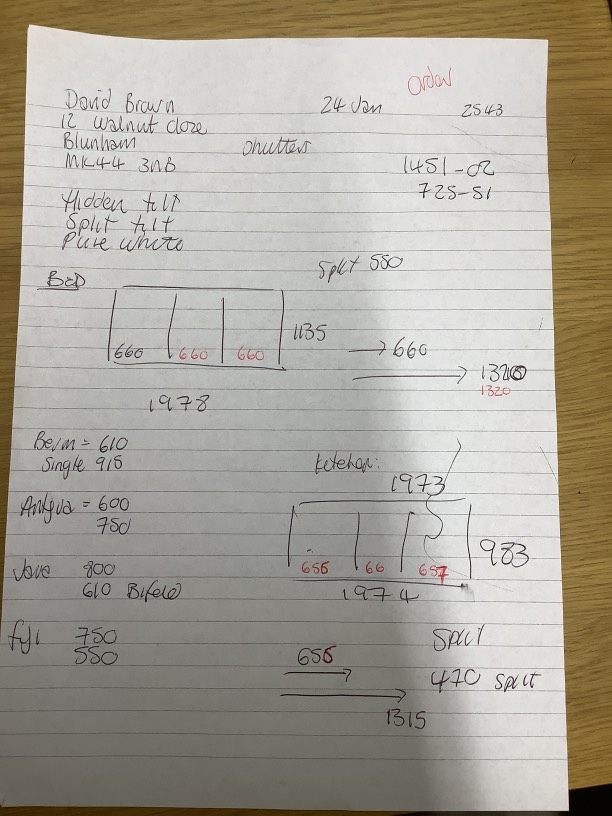 Order
David Brown 24 Jan 2543
12 Walnut close
Blunham Shutters
MK44 3NB 1451-02
725-51
Hidden tilt
Split tilt
Pure white
Split 550
BED
1135
660 660 660
→ 660
→ 1320
1320
1978
Berm = 610
Single 915
Kitchen:
1973
Antgua = 600
750
983
656 66 657
Java 800
610 Bifold
1974
Fyi 750
550
Split
656
470 Split
1315